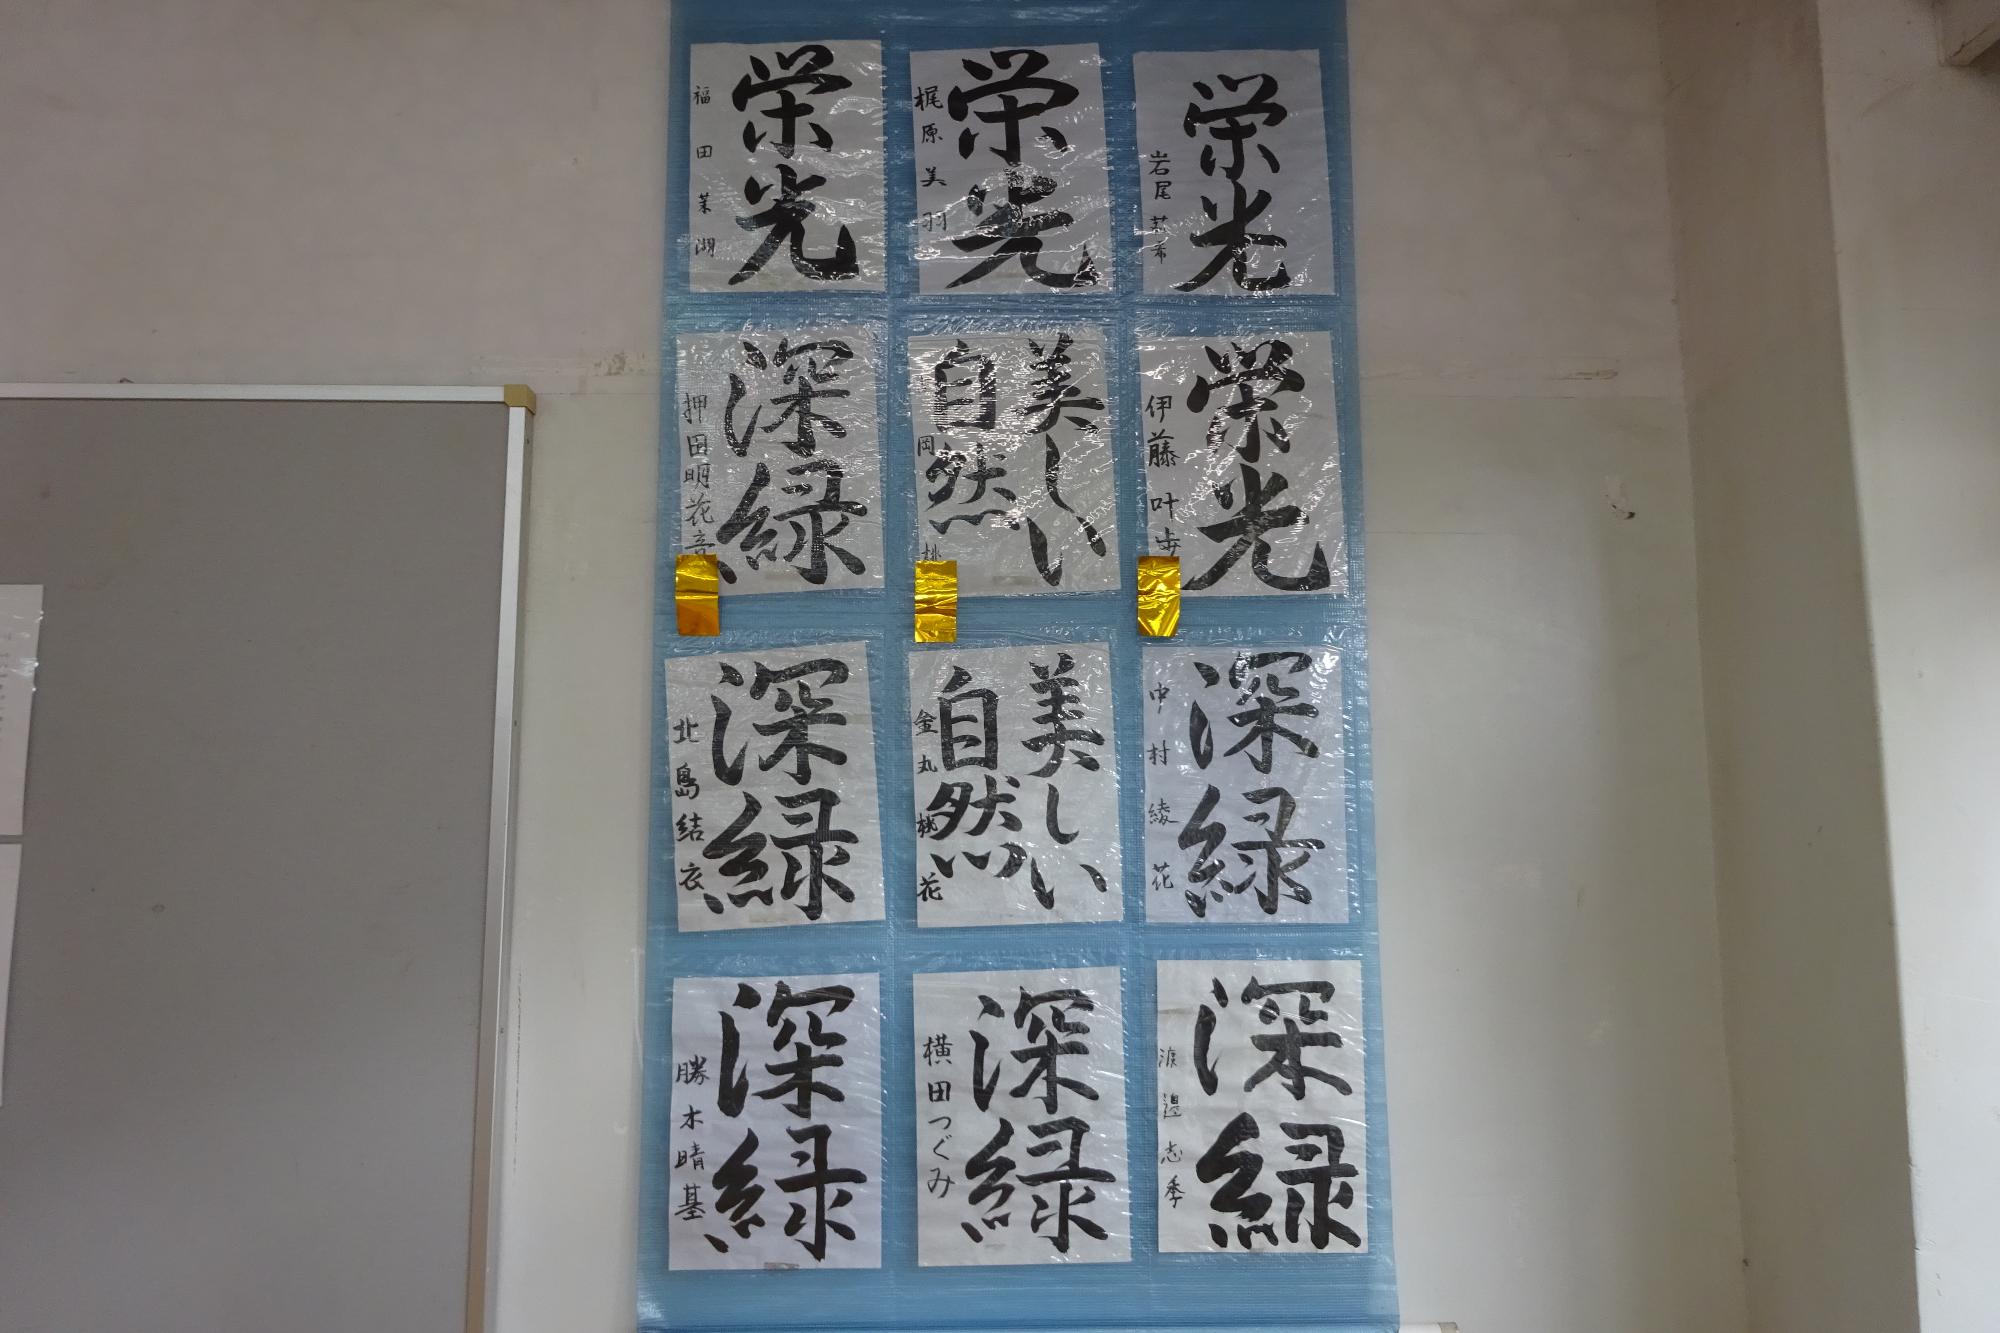 栄光
岩尾
希
栄光
梶原美羽
栄光
福田茉湖
栄光
伊藤叶歩
美しい
自然
岡
桃
深緑
押田明花音
深緑
中村綾花
美しい
自然
金丸桃花
深緑
北島結衣
深緑
渡邉志季
深緑
横田つぐみ
深緑
勝木晴基